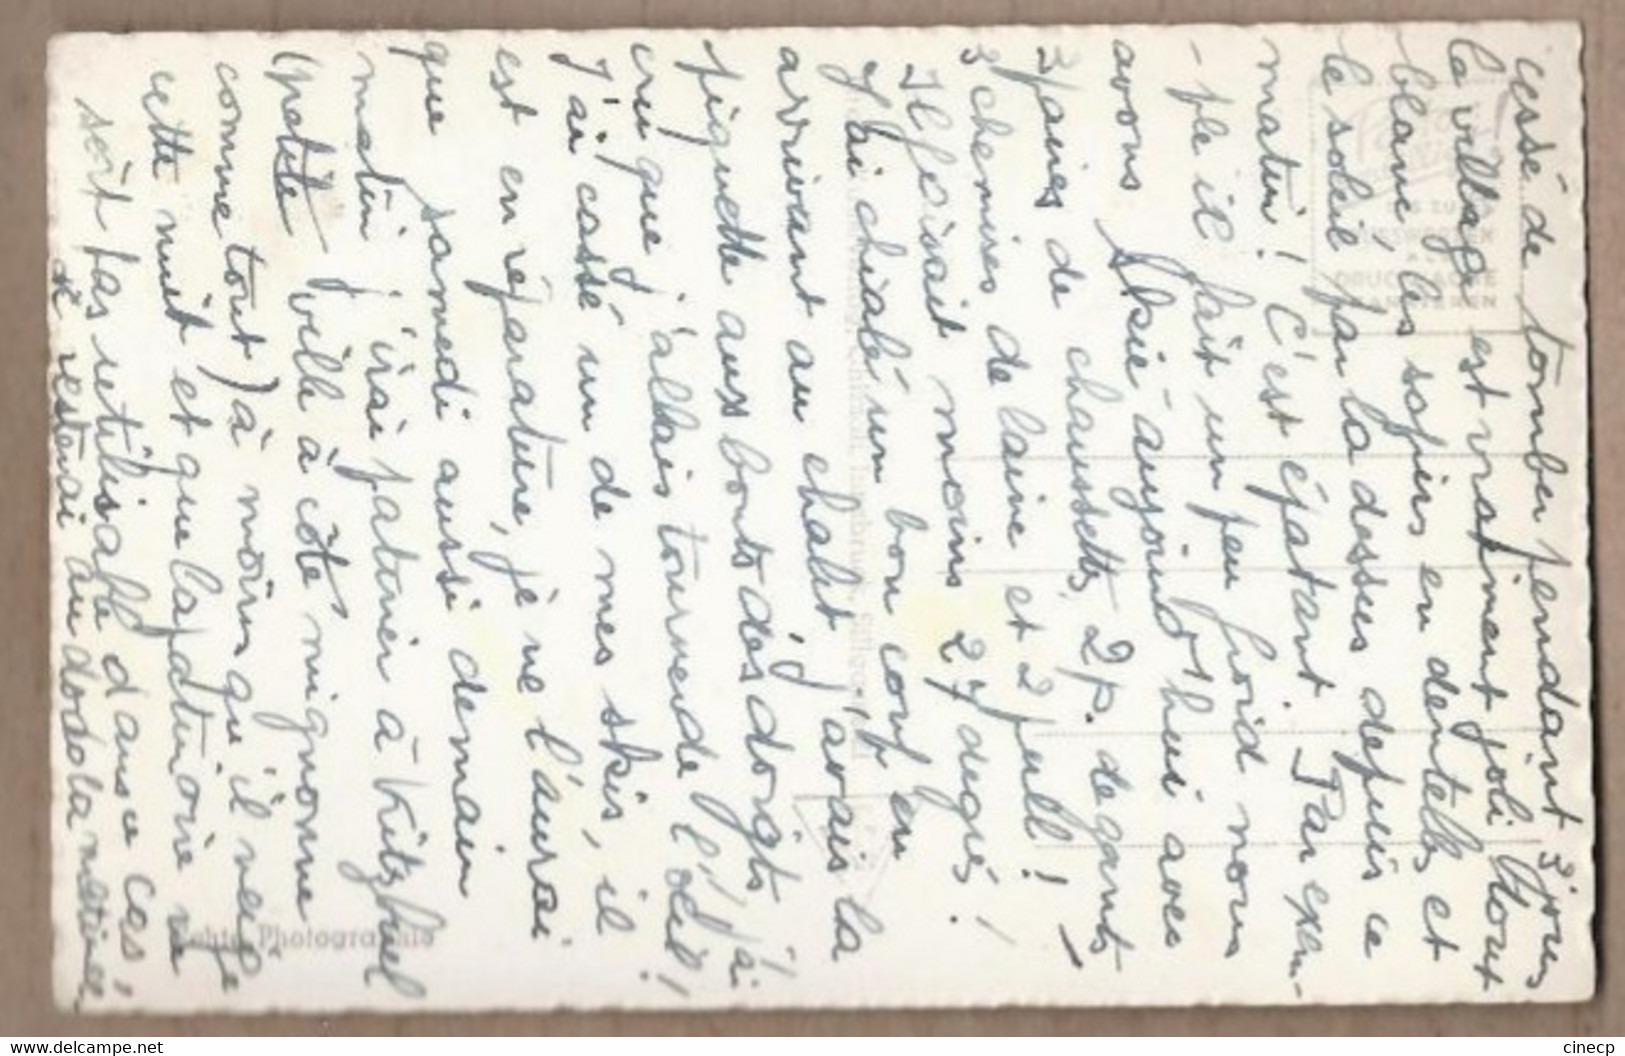 cessé de tomber pendant 3 jours
le village est vraiment joli tout
blanc, les sapins en dentelles et
le soleil par la dessus depuis ce
matin! C'est épatant. Par exem-
-ple il fait un peu froid nous
avons skié aujourd'hui avec
3 paires de chaussettes, 2 p. de gants,
3 chemises de laine et 2 pull!
Il faisait moins 27 degrés!
J'ai chialé un bon coup en
arrivant au chalet j'avais la
piquette aux bouts des doigts, j'ai
cru que j'allais tourner de l'œil!
J'ai cassé un de mes skis, il
est en réparature, je ne l'aurai
que samedi aussi demain
matin j'irai patiner à Kitzbuel
(petite ville à côté mignonne
comme tout) à moins qu'il neige
cette nuit et que la patinoire ne
soit pas utilisable dans ce cas,
je resterai au dodo la matinée
Echte Photographie
delcampe.net
cinecp